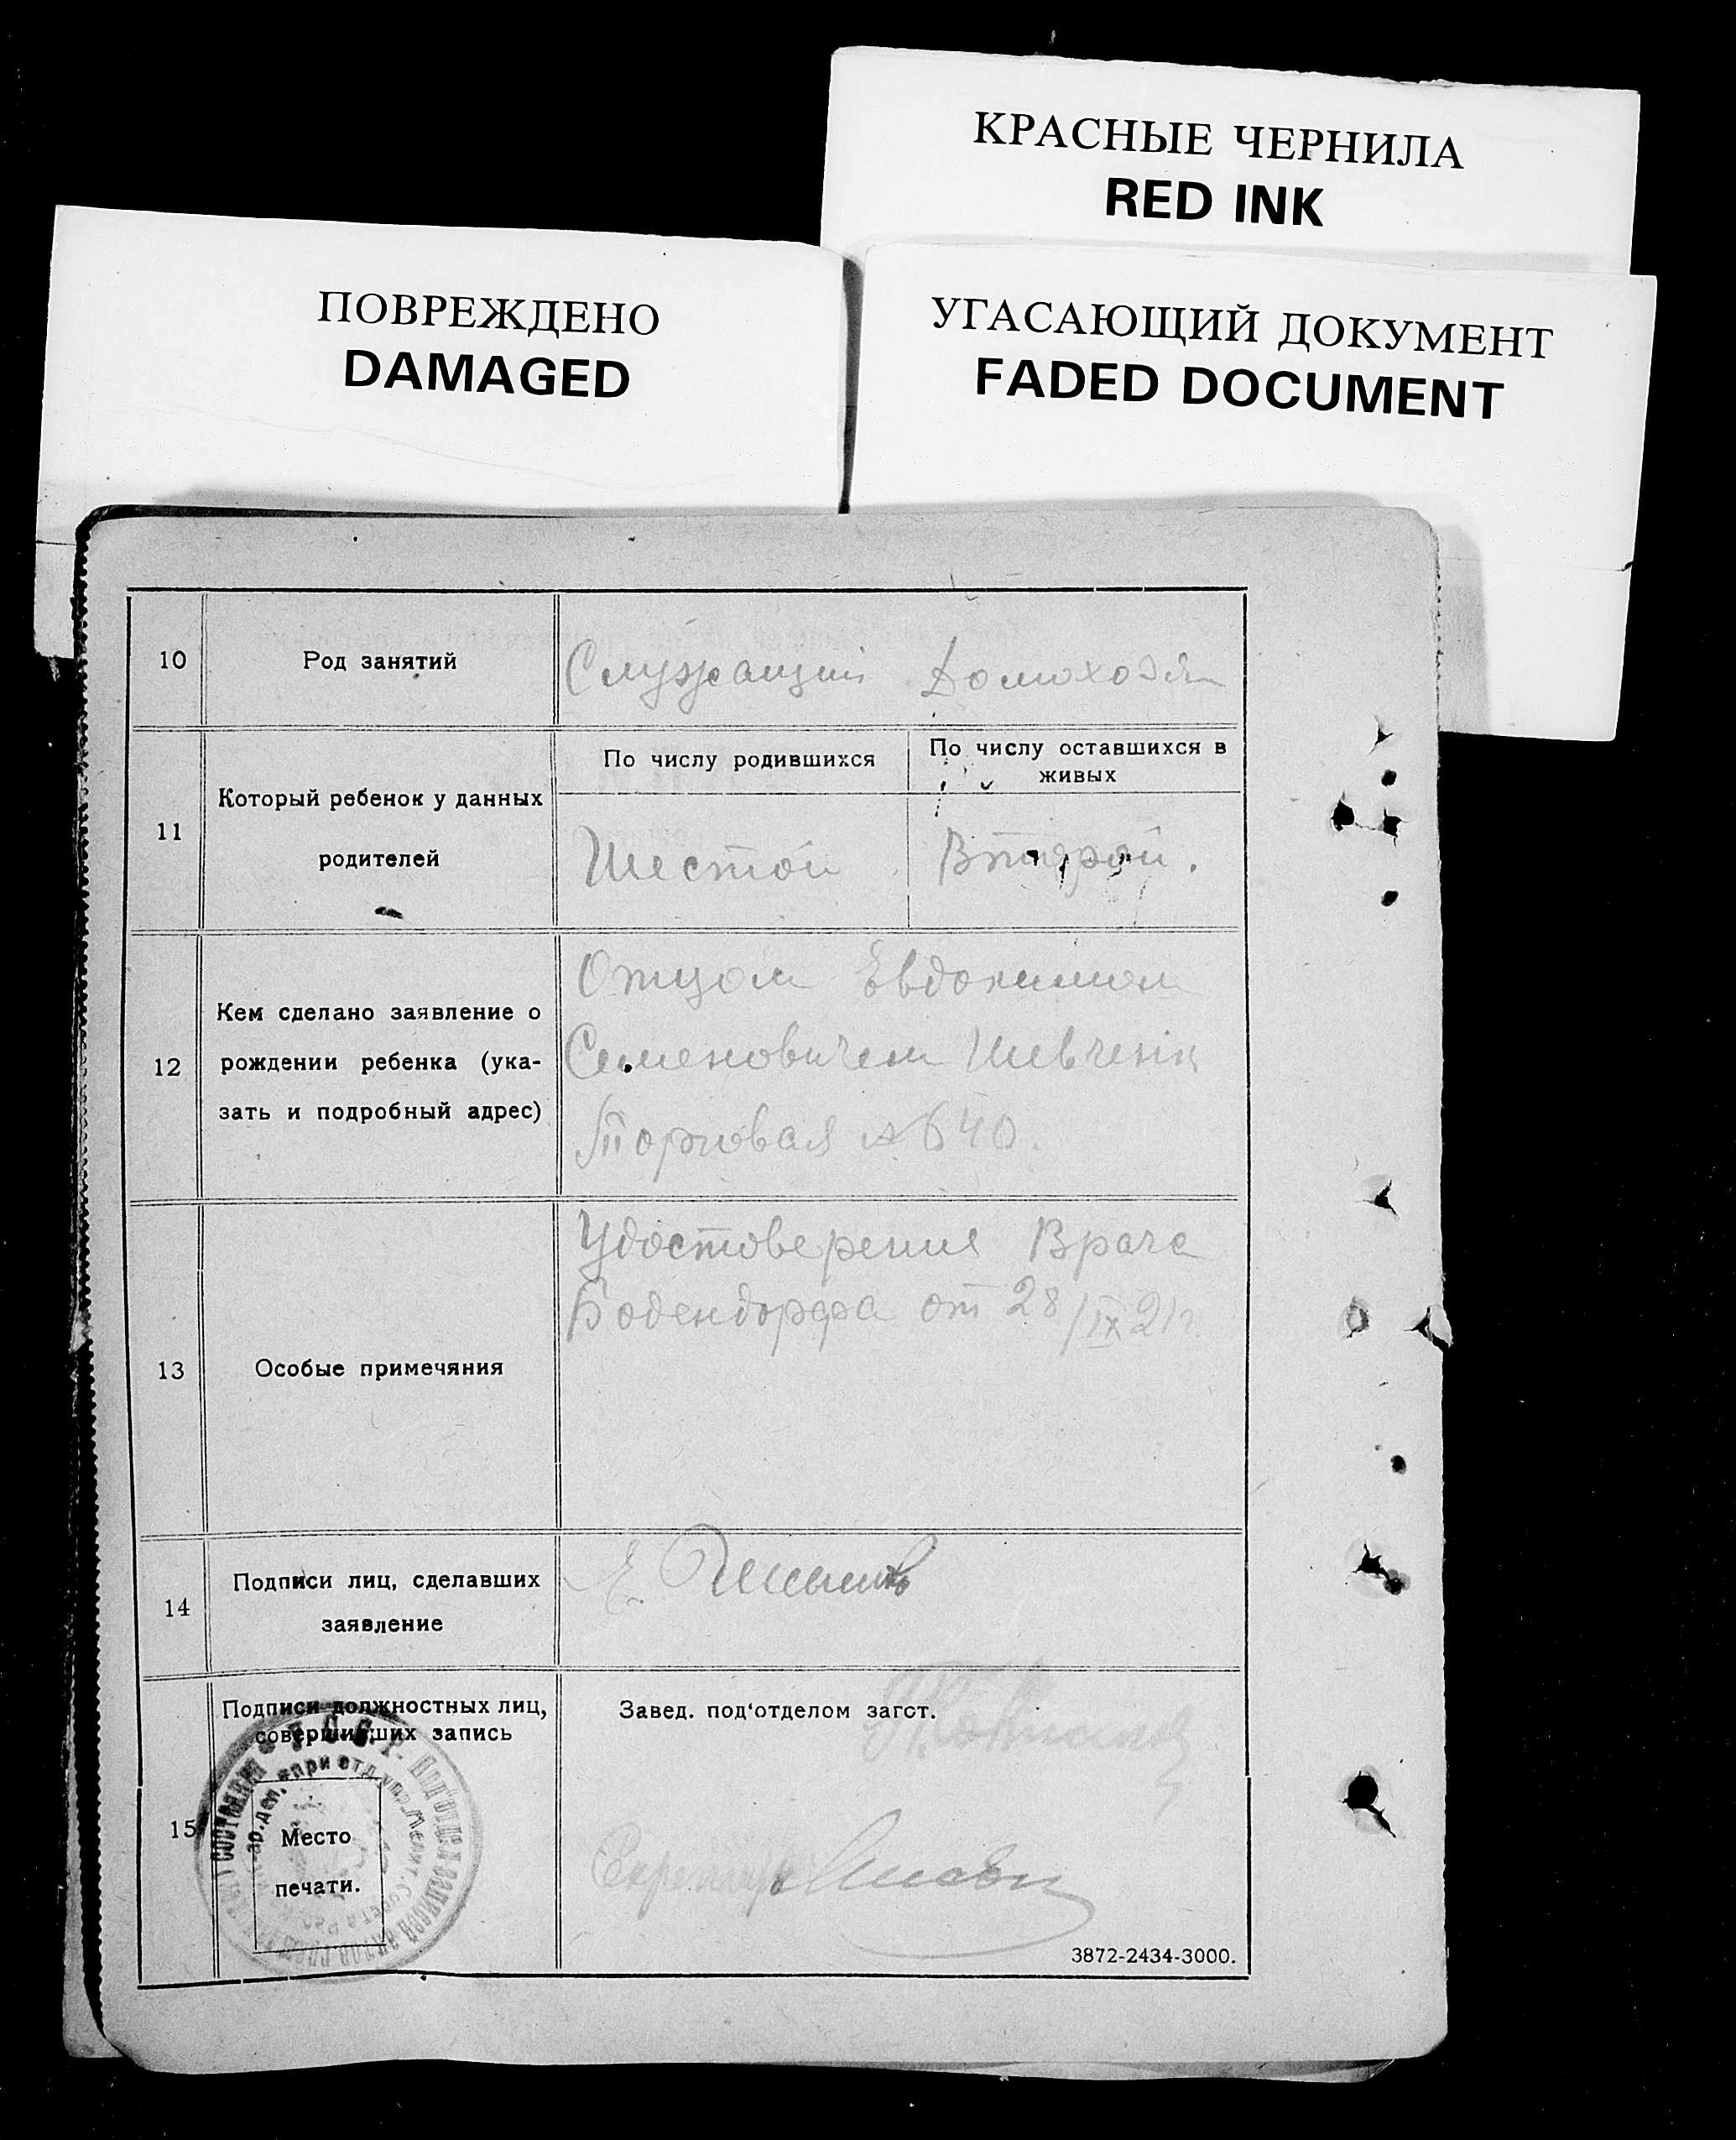 КРАСНЫЕ ЧЕРНИЛА
RED INK
ПОВРЕЖДЕНО
DAMAGED
УГАСАЮЩИЙ ДОКУМЕНТ
FADED DOCUMENT
10 Род занятий Служащий Домохозяй
11 Который ребенок у данных родителей
По числу родившихся По числу оставшихся в живых
Шестой Второй.
12 Кем сделано заявление о
рождении ребенка (ука-
зать и подробный адрес)
Отцом Евдокимом
Семеновичем Шевченк
Торговая № 40.
13 Особые примечяния
Удостоверения Врача
Бодендорфа от 28/IX 21г.
14 Подписи лиц, сделавших
заявление
Е.
15 Подписи должностных лиц,
совершивших запись
Завед. под'отделом загст.
Место
печати.
Секретарь
3872-2434-3000.